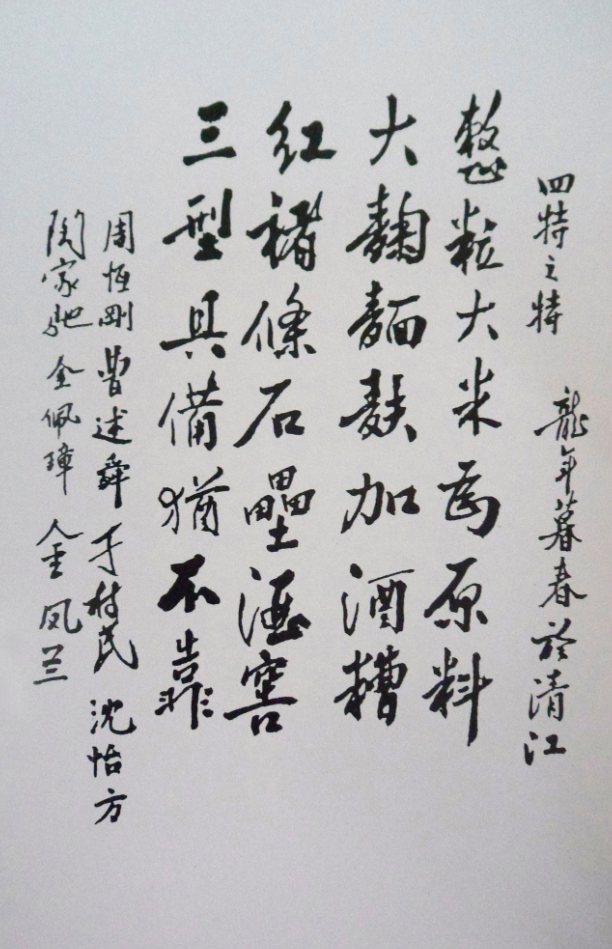 四特之特 龍年暮春於清江
整粒大米為原料
大麴麵麩加酒糟
红褚條石壘酒窖
三型具備猶不靠
周恆剛 曹述舜 于树民 沈怡方
陶家馳 金佩璋 金凤兰